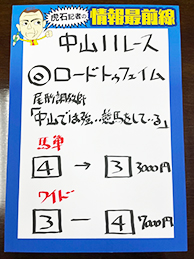 虎石記者の
情報最前線
中山11レース
◎ロードトゥフェイム
尾形調教師
「中山では強…競馬をして…る」
馬単
4 → 3 3000円
ワイド
3 − 4 7000円